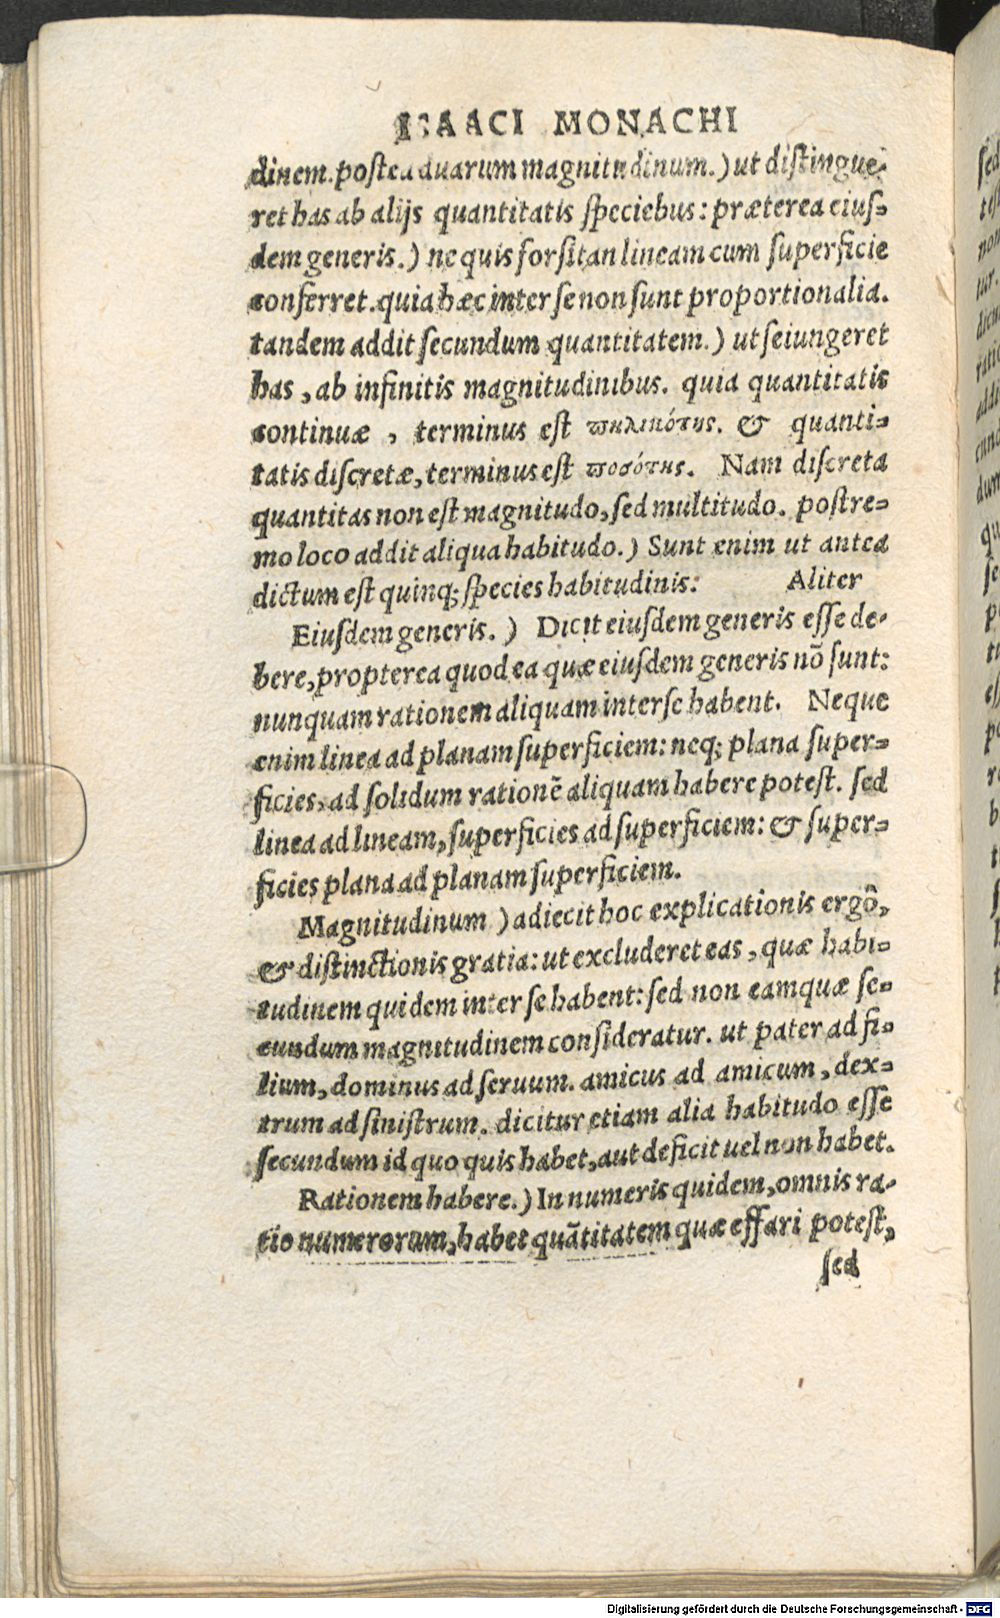 ISAACI MONACHI
dinem. postea duarum magnitudinum.) ut distingue-
ret has ab alijs quantitatis speciebus: præterea eius-
dem generis.) ne quis forsitan lineam cum superficie
conferret. quia hæc inter se non sunt proportionalia.
tandem addit secundum quantitatem.) ut seiungeret
has, ab infinitis magnitudinibus. quia quantitatis
continuæ, terminus est πηλικότης. & quanti-
tatis discretæ, terminus est ποσότης. Nam discreta
quantitas non est magnitudo, sed multitudo. postre-
mo loco addit aliqua habitudo.) Sunt enim ut antea
dictum est quinq; species habitudinis: Aliter
Eiusdem generis.) Dicit eiusdem generis esse de-
bere, propterea quod ea quæ eiusdem generis nõ sunt:
nunquam rationem aliquam inter se habent. Neque
enim linea ad planam superficiem: neq; plana super-
ficies, ad solidum rationẽ aliquam habere potest. sed
linea ad lineam, superficies ad superficiem: & super-
ficies plana ad planam superficiem.
Magnitudinum) adiecit hoc explicationis ergô,
& distinctionis gratia: ut excluderet eas, quæ habi-
tudinem quidem inter se habent: sed non eamquæ se-
cundum magnitudinem consideratur. ut pater ad fi-
lium, dominus ad seruum. amicus ad amicum, dex-
trum ad sinistrum. dicitur etiam alia habitudo esse
secundum id quo quis habet, aut deficit uel non habet.
Rationem habere.) In numeris quidem, omnis ra-
tio numerorum, habet quãtitatem quæ effari potest,
sed
Digitalisierung gefördert durch die Deutsche Forschungsgemeinschaft - DFG